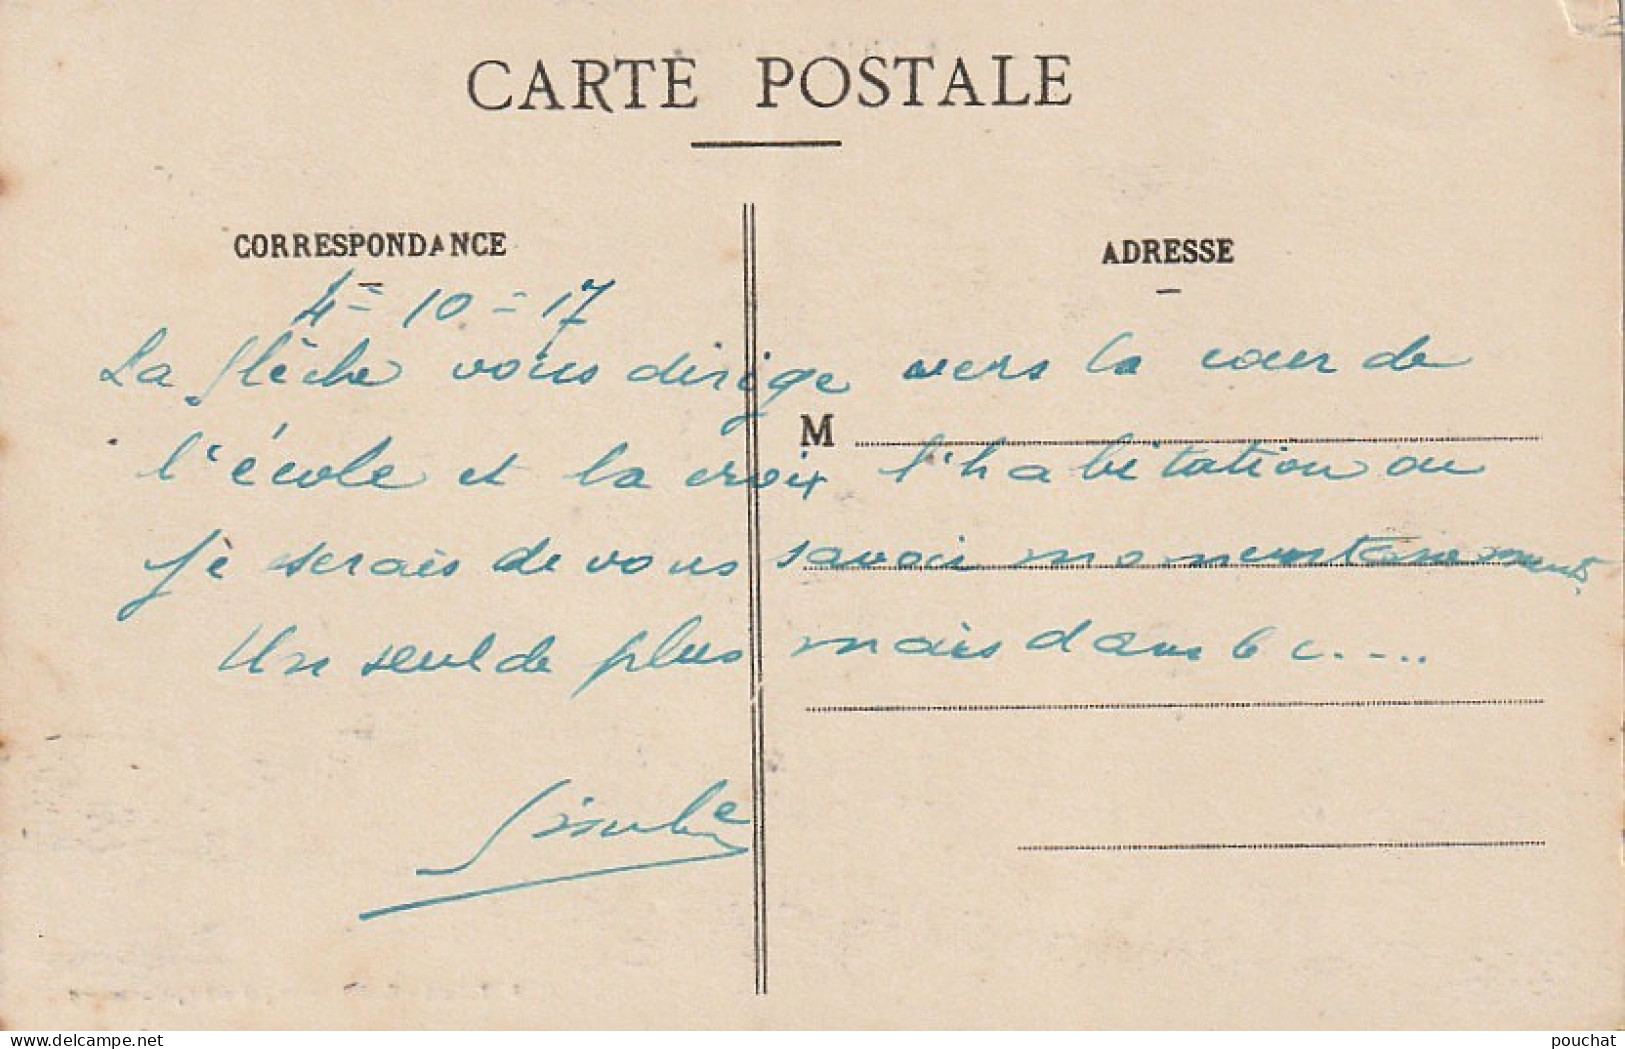 CARTE POSTALE
CORRESPONDANCE
ADRESSE
4 = 10 = 17
La flêche vous dirige vers la cour de
M
l'école et la croix l'habitation ou
je serais de vous savoir momentanement,
Un seul de plus mais dans le c....
delcampe.net
pouchat